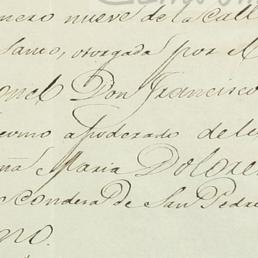 mero nueve de la Call
Sauco, otorgada por el
onel Don Francisco
como apoderado de la
ña Maria Dolores
Condesa de San Pedro
no.